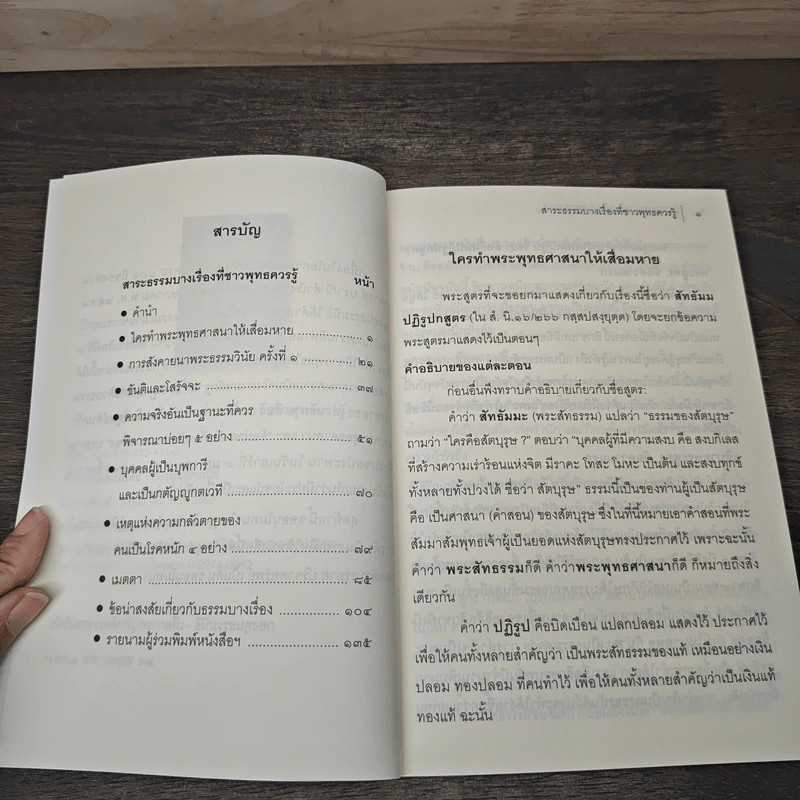 สารบัญ
สาระธรรมบางเรื่องที่ชาวพุทธควรรู้ หน้า
• คำนำ
• ใครทำพระพุทธศาสนาให้เสื่อมหาย ..................... ๑
• การสังคายนาพระธรรมวินัย ครั้งที่ ๑ ..................... ๒๑
• ขันติและโสรัจจะ ..................... ๓๗
• ความจริงอันเป็นฐานะที่ควร
พิจารณาบ่อยๆ ๕ อย่าง ..................... ๕๑
• บุคคลผู้เป็นบุพการี
และเป็นกตัญญูกตเวที ..................... ๗๐
• เหตุแห่งความกลัวตายของ
คนเป็นโรคหนัก ๔ อย่าง ..................... ๗๙
• เมตตา ..................... ๘๕
• ข้อน่าสงสัยเกี่ยวกับธรรมบางเรื่อง ..................... ๑๐๔
• รายนามผู้ร่วมพิมพ์หนังสือฯ ..................... ๑๓๕
สาระธรรมบางเรื่องที่ชาวพุทธควรรู้ | ๑
ใครทำพระพุทธศาสนาให้เสื่อมหาย
พระสูตรที่จะขอยกมาแสดงเกี่ยวกับเรื่องนี้ชื่อว่า สัทธัมม
ปฏิรูปกสูตร (ใน สํ. นิ.๑๖/๒๖๖ กสฺสปสงฺยุตฺต) โดยจะยกข้อความ
พระสูตรมาแสดงไว้เป็นตอนๆ
คำอธิบายของแต่ละตอน
ก่อนอื่นพึงทราบคำอธิบายเกี่ยวกับชื่อสูตร:
คำว่า สัทธัมมะ (พระสัทธรรม) แปลว่า "ธรรมของสัตบุรุษ"
ถามว่า "ใครคือสัตบุรุษ ?" ตอบว่า "บุคคลผู้ที่มีความสงบ คือ สงบกิเลส
ที่สร้างความเร่าร้อนแห่งจิต มีราคะ โทสะ โมหะ เป็นต้น และสงบทุกข์
ทั้งหลายทั้งปวงได้ ชื่อว่า สัตบุรุษ" ธรรมนี้เป็นของท่านผู้เป็นสัตบุรุษ
คือ เป็นศาสนา (คำสอน) ของสัตบุรุษ ซึ่งในที่นี้หมายเอาคำสอนที่พระ
สัมมาสัมพุทธเจ้าผู้เป็นยอดแห่งสัตบุรุษทรงประกาศไว้ เพราะฉะนั้น
คำว่า พระสัทธรรมก็ดี คำว่าพระพุทธศาสนาก็ดี ก็หมายถึงสิ่ง
เดียวกัน
คำว่า ปฏิรูป คือบิดเบือน แปลกปลอม แสดงไว้ ประกาศไว้
เพื่อให้คนทั้งหลายสำคัญว่า เป็นพระสัทธรรมของแท้ เหมือนอย่างเงิน
ปลอม ทองปลอม ที่คนทำไว้ เพื่อให้คนทั้งหลายสำคัญว่าเป็นเงินแท้
ทองแท้ ฉะนั้น